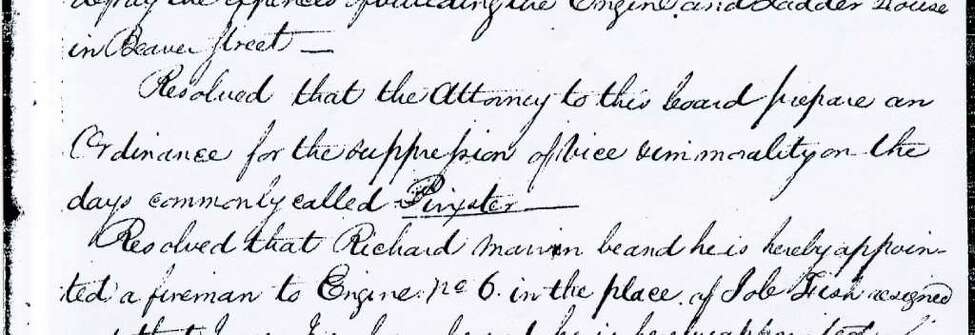 defray the expences of building the Engine and Ladder House
in Beaver Street —
Resolved that the Attorney to this board prepare an
Ordinance for the suppression of vice & immorality on the
days commonly called Pinxter —
Resolved that Richard Marvin be and he is hereby appoin-
ted a fireman to Engine No 6. in the place of Job Fish resigned
he is hereby appointed